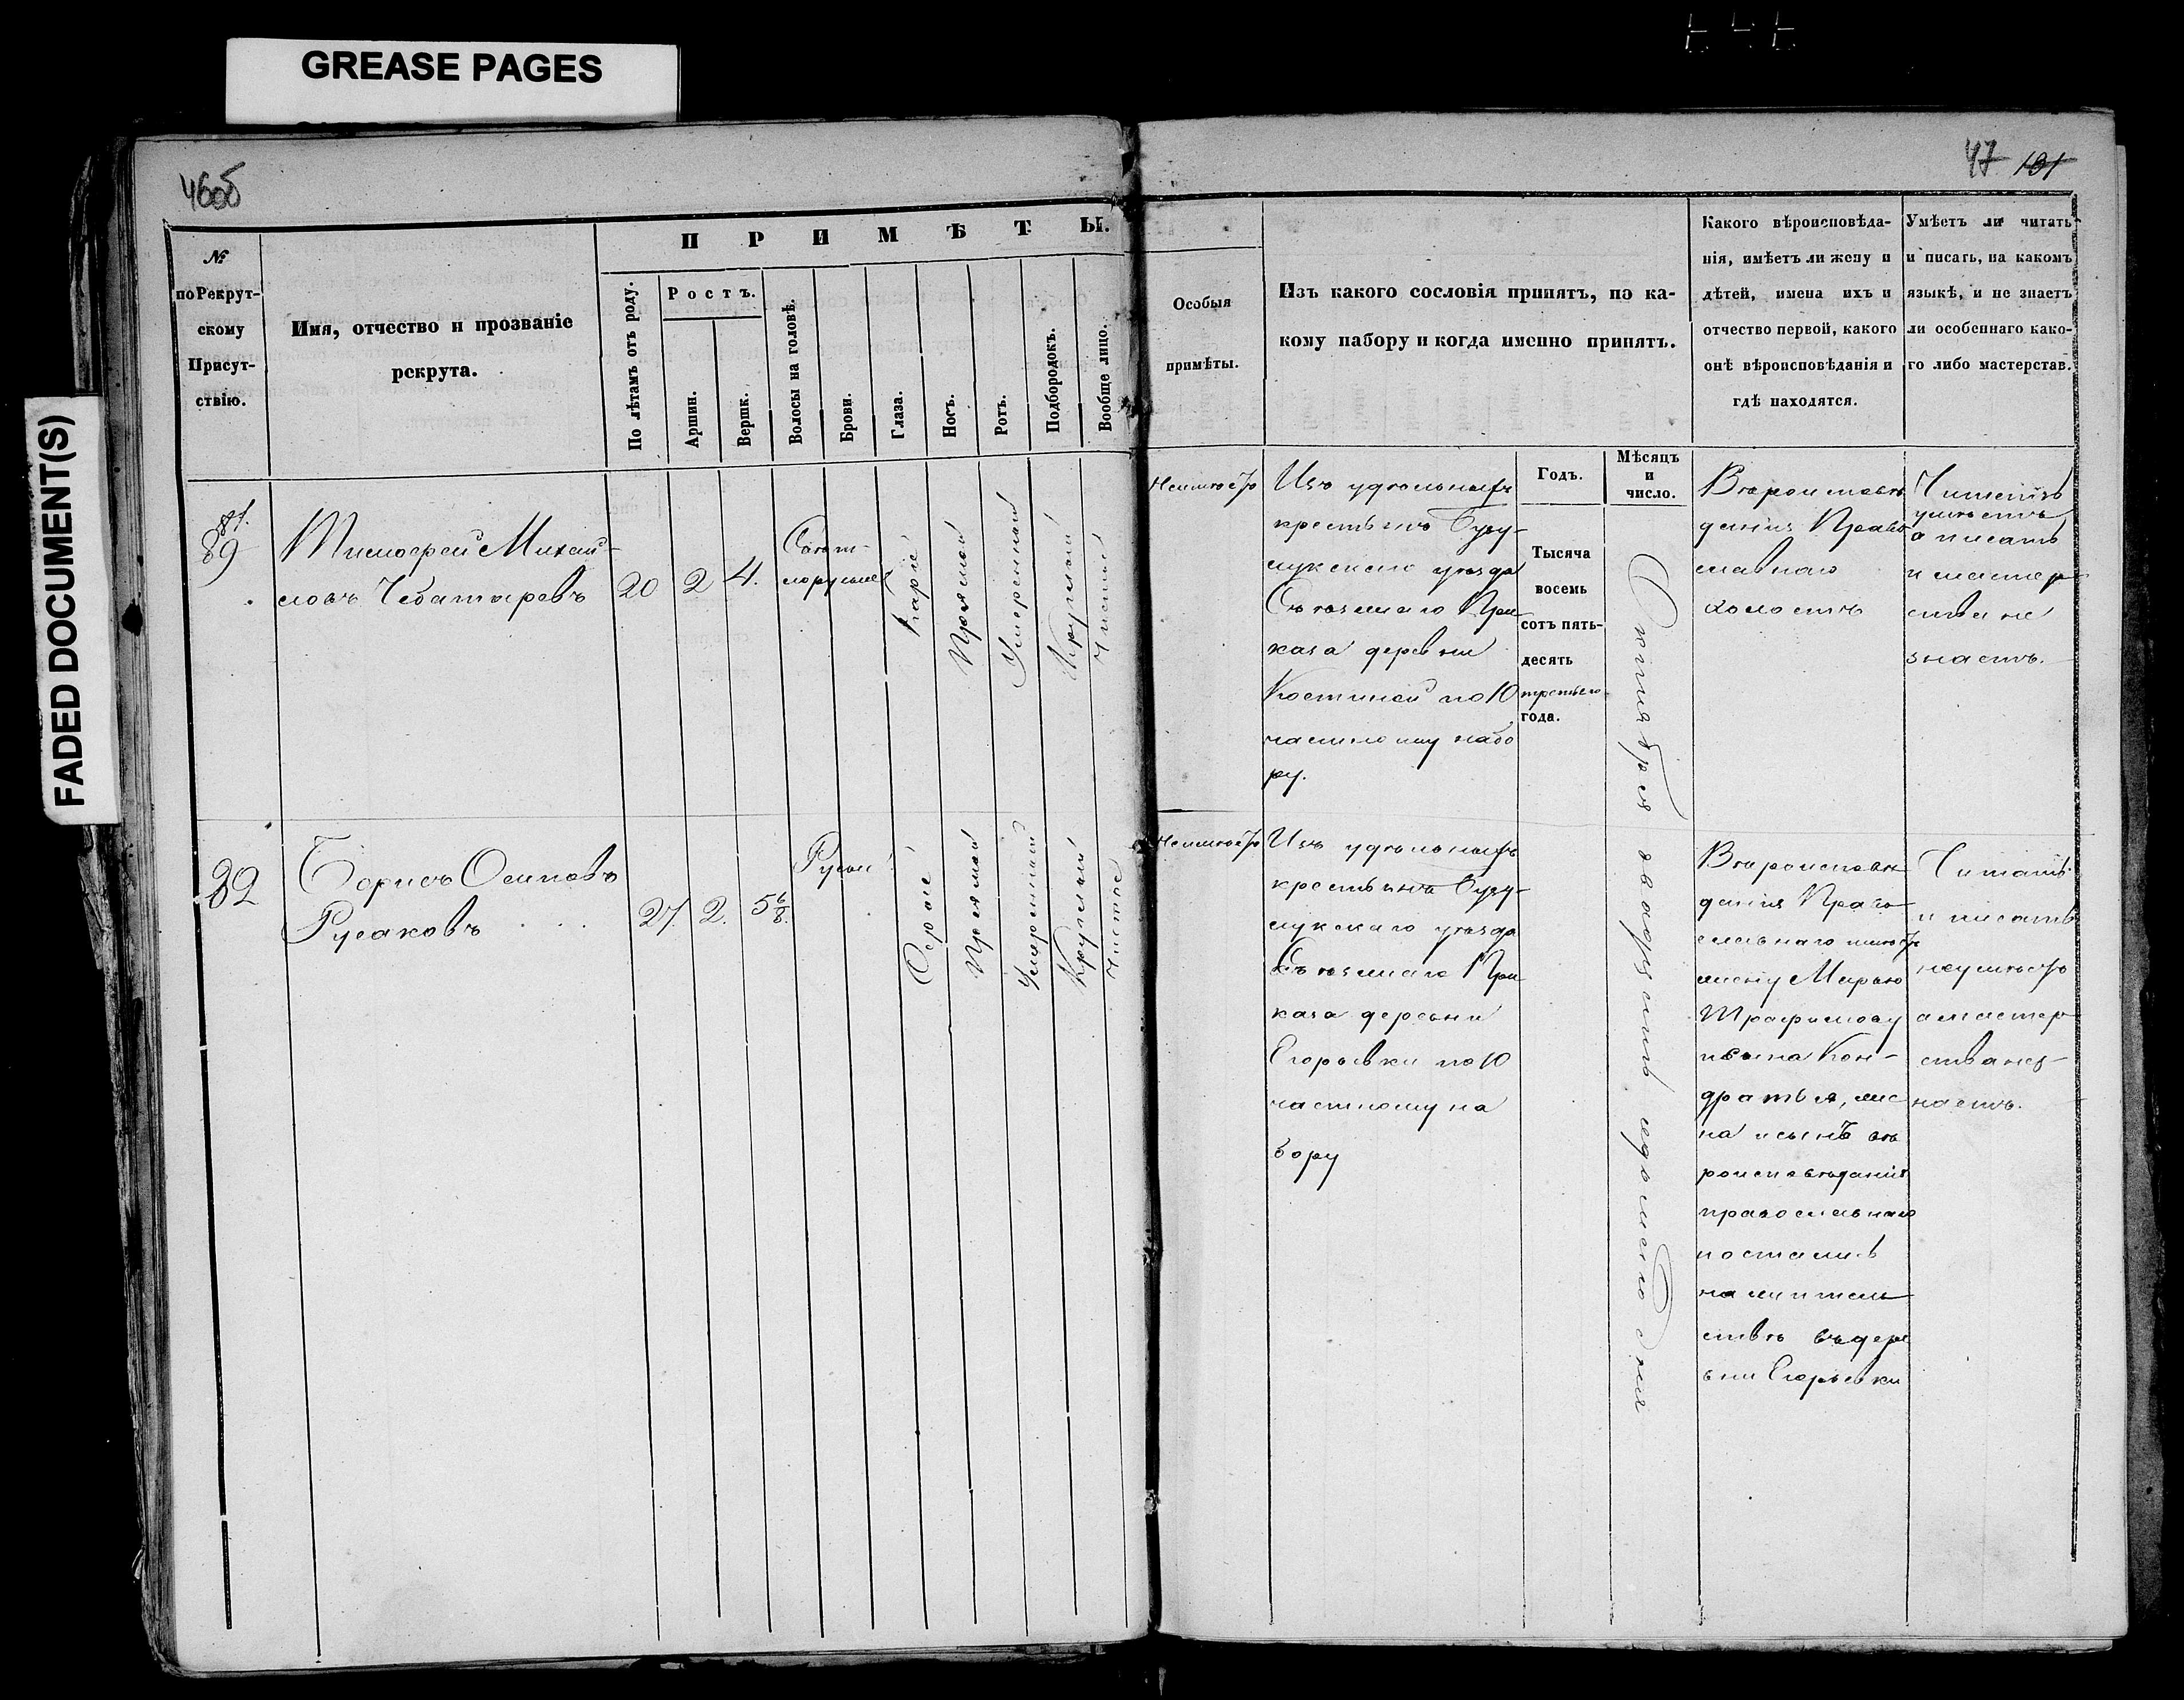 GREASE PAGES
FADED DOCUMENT(S)
46об
47 101
№
по Рекрут-
скому
Присут-
ствію.
Имя, отчество и прозваніе
рекрута.
ПРИМѢТЫ.
По лѣтамъ отъ роду.
Ростъ.
Аршин.
Вершк.
Волосы на головѣ.
Брови.
Глаза.
Носъ.
Ротъ.
Подбородокъ.
Вообще лицо.
Особыя
примѣты.
Изъ какого сословія принятъ, по ка-
кому набору и когда именно принятъ.
Какого вѣроисповѣда-
нія, имѣетъ ли жену и
дѣтей, имена ихъ и
отчество первой, какого
онѣ вѣроисповѣданія и
гдѣ находятся.
Умѣетъ ли читать
и писать, на какомъ
языкѣ, и не знаетъ
ли особеннаго како-
го либо мастерства.
81.
89
Тимофей Михай-
ловъ Чеботаревъ
20
2
4.
Свѣт-
лорусые
Каріе
Прямой
Умеренной
Круглой
Чистое
Неимѣетъ
Изъ удѣльныхъ
крестьянъ Бузу-
лукскаго уезда
Съезжаго При-
каза деревни
Костиной по 10
частному набо
ру.
Годъ.
Тысяча
восемь
сотъ пять-
десять
третьего
года.
Мѣсяцъ
и
число.
Октября двадцать седьмого дня
Вѣроисповѣ
данія Право
славнаго
холостъ
Читать
умѣетъ
а писать
и мастер
ства не
знаетъ.
82
Борисъ Осиповъ
Русаковъ
27.
2.
5 6/8.
Русые
Серые
Прямой
Умеренной
Круглой
Чистое
Неимѣетъ
Изъ удѣльныхъ
крестьянъ Бузу-
лукскаго уезда
Съезжаго При
каза деревни
Егорьевки по 10
частному на
бору
Вѣроисповѣ
данія Право
славнаго имѣетъ
жену Марью
Трофимову
и сына Кон-
дратья, же
на и сынъ вѣ
роисповѣданія
православнаго
остались
на житель
ствѣ въ дере
вни Егорьевки
Читать
и писать
неумѣетъ
а мастер
ства нез-
наетъ.